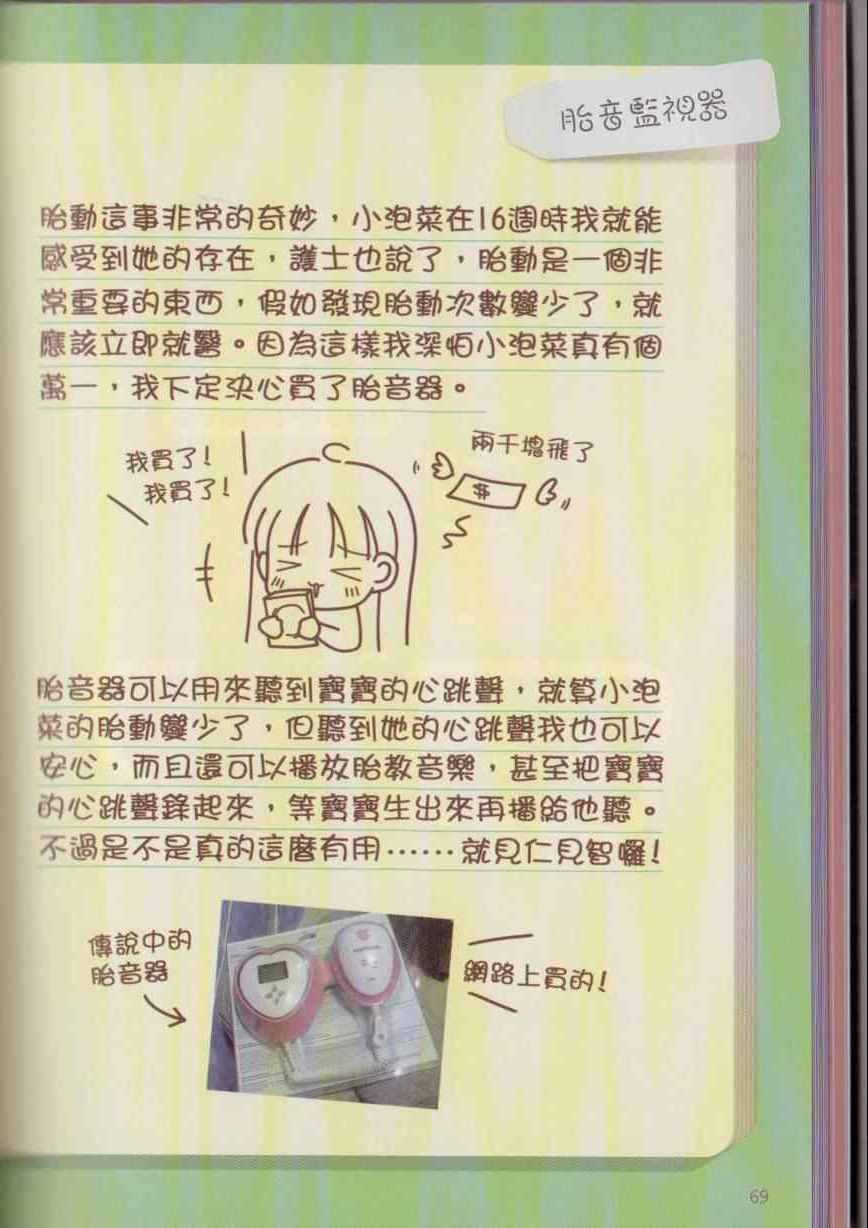 胎音監視器
胎動這事非常的奇妙，小泡菜在16週時我就能
感受到她的存在，護士也說了，胎動是一個非
常重要的東西，假如發現胎動次數變少了，就
應該立即就醫。因為這樣我深怕小泡菜真有個
萬一，我下定決心買了胎音器。
我買了！
我買了！
兩千塊飛了
$
胎音器可以用來聽到寶寶的心跳聲，就算小泡
菜的胎動變少了，但聽到她的心跳聲我也可以
安心，而且還可以播放胎教音樂，甚至把寶寶
的心跳聲錄起來，等寶寶生出來再播給他聽。
不過是不是真的這麼有用……就見仁見智囉！
傳說中的
胎音器
網路上買的！
69